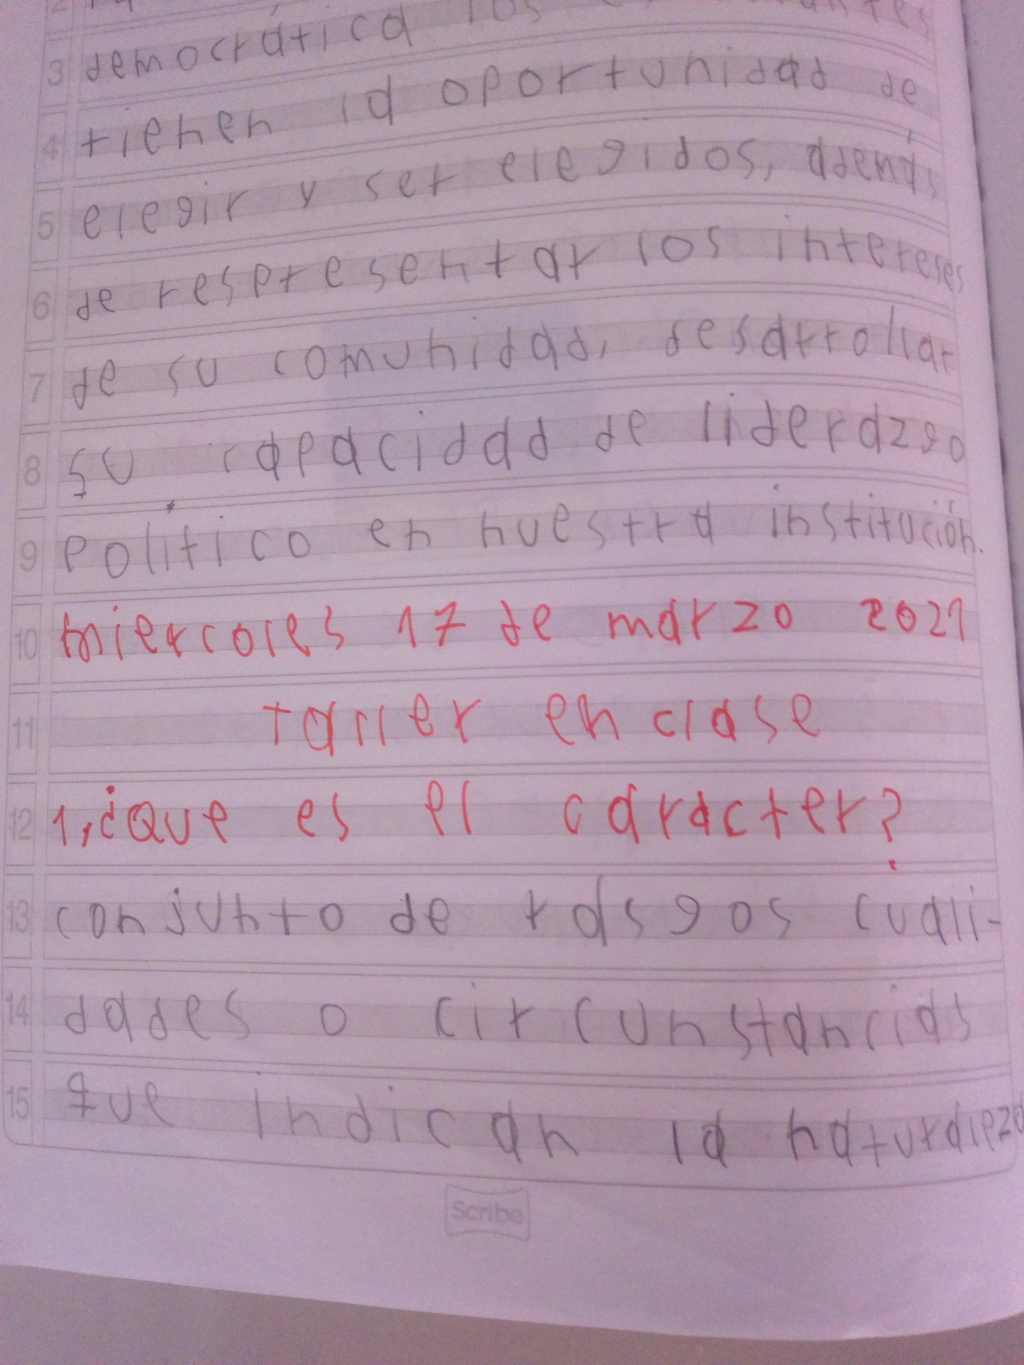 3 democrática los
4 tienen la oportunidad de
5 elegir y ser elegidos, además
6 de respresentar los intereses
7 de su comunidad, desarrollar
8 su capacidad de liderazgo
9 político en nuestra institución.
10 miercoles 17 de marzo 2021
11 taller en clase
12 1, ¿Que es el caracter?
13 conjunto de rasgos cuali-
14 dades o circunstancias
15 que indican la naturaleza
Scribe